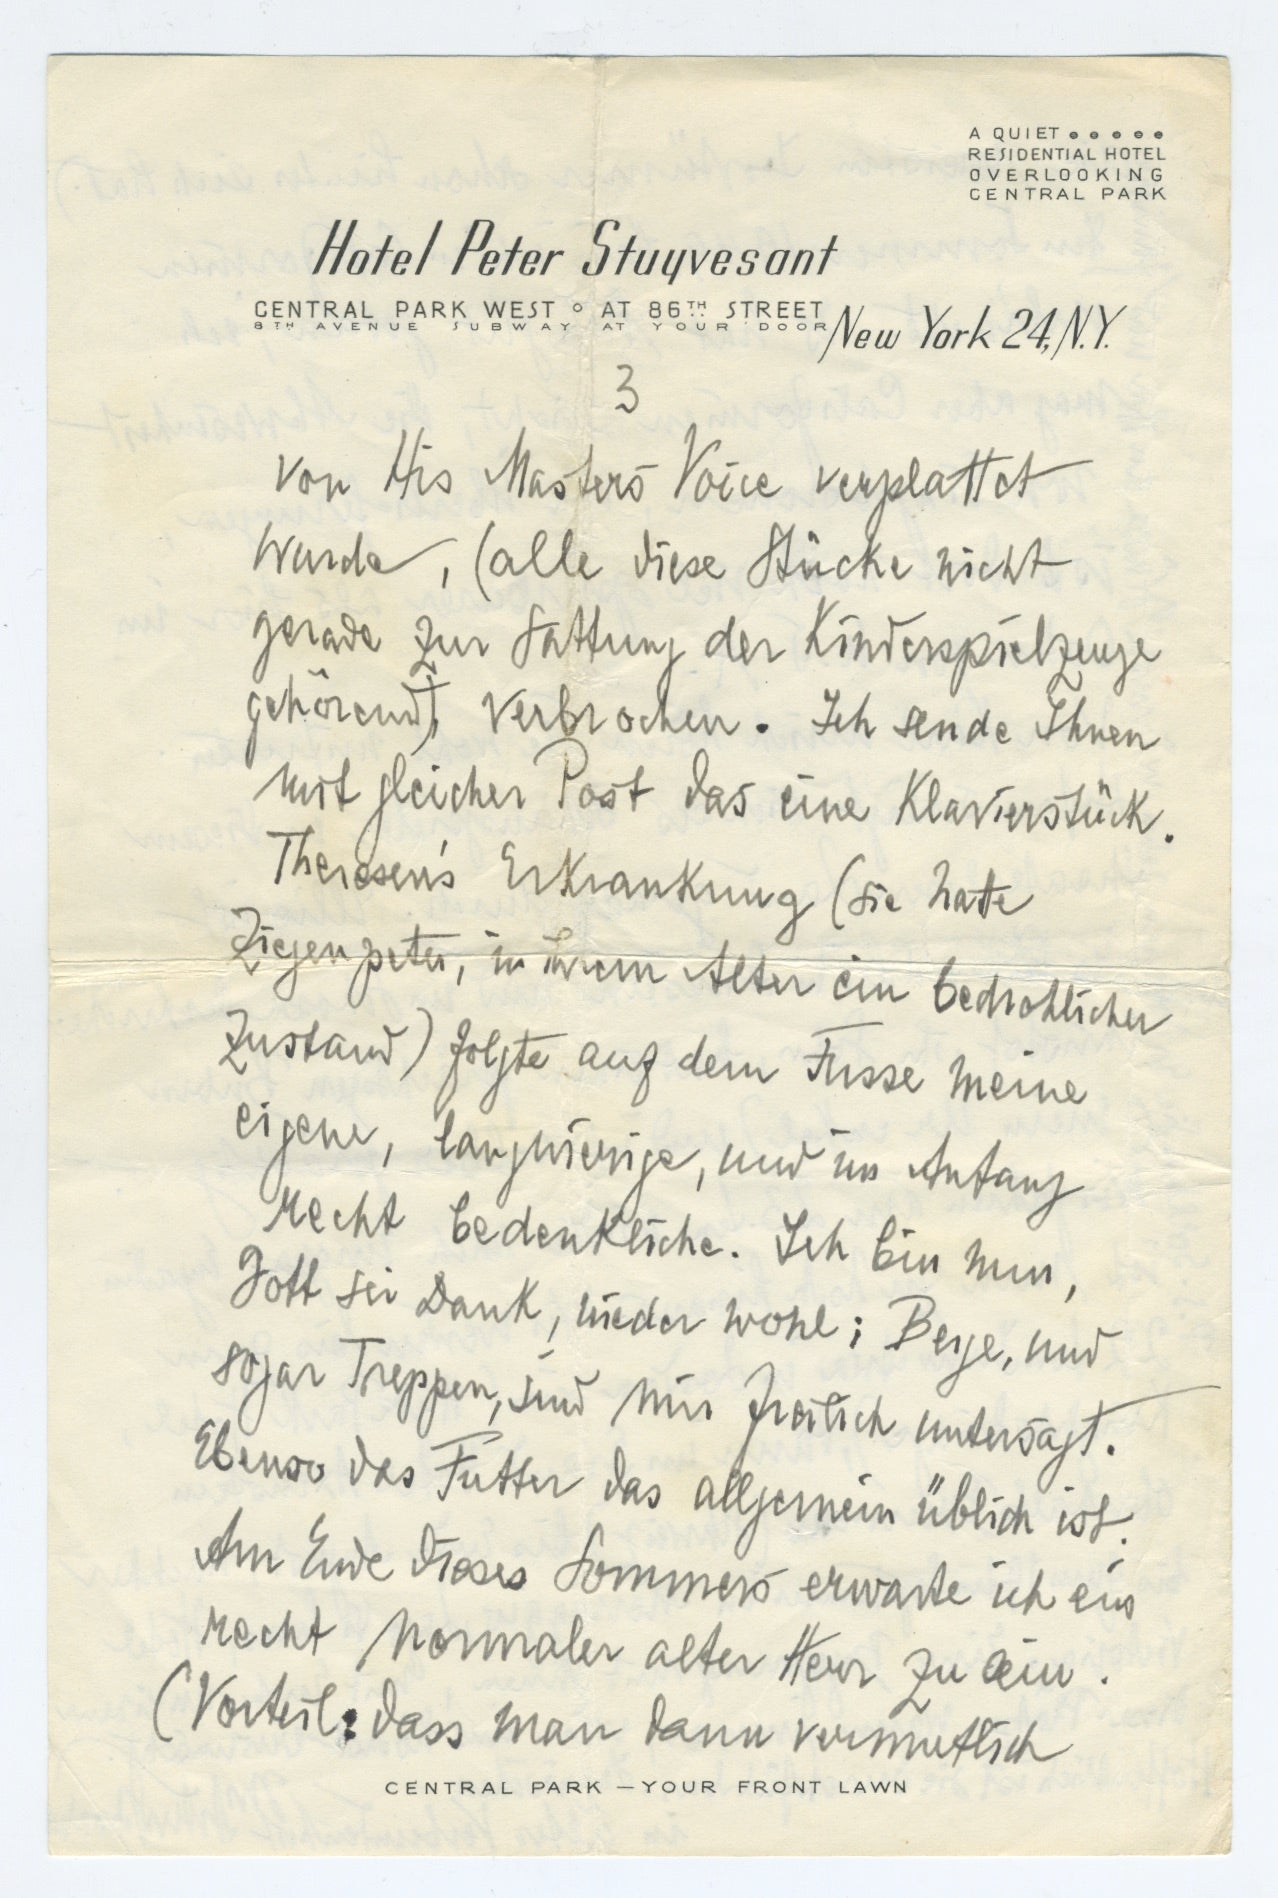 A QUIET • • • • •
RESIDENTIAL HOTEL
OVERLOOKING
CENTRAL PARK
Hotel Peter Stuyvesant
CENTRAL PARK WEST ° AT 86TH STREET
8TH AVENUE SUBWAY AT YOUR DOOR
New York 24, N.Y.
3
von His Masters Voice verplattet
wurde, (alle diese Stücke nicht
gerade zur Gattung der Kinderspielzeuge
gehörend), verbrochen. Ich sende Ihnen
mit gleicher Post das eine Klavierstück.
Theresen's Erkrankung (sie hatte
Ziegenpeter, in ihrem Alter ein bedrohlicher
Zustand) folgte auf dem Fusse meine
eigene, langwierige, und im Anfang
recht bedenkliche. Ich bin nun,
Gott sei Dank, wieder wohl; Berge, und
sogar Treppen, sind mir freilich untersagt.
Ebenso das Futter das allgemein üblich ist.
Am Ende dieses Sommers erwarte ich ein
recht normaler alter Herr zu sein.
(Vorteil: dass man dann vermutlich
CENTRAL PARK — YOUR FRONT LAWN